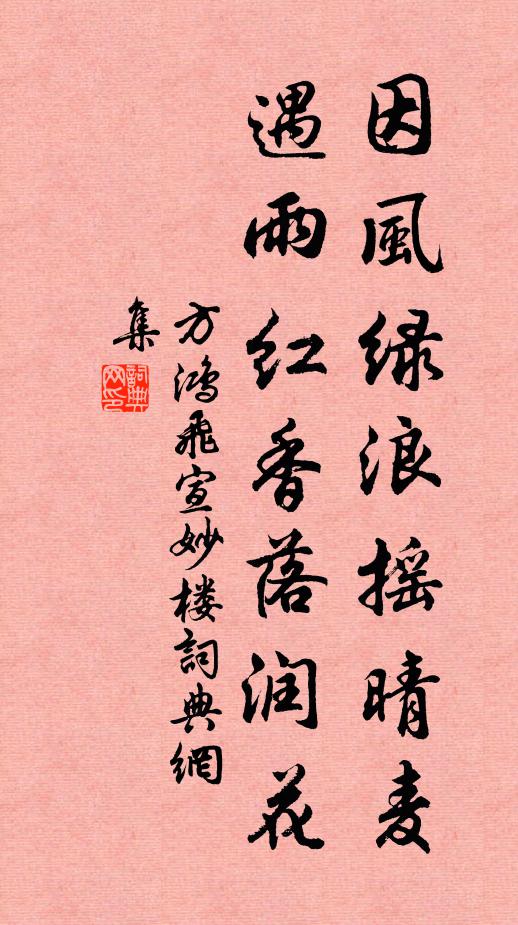 因風绿浪摇晴麦
遇雨红香落润花
方鸿飛宣妙楼詞典網
集
詞典
网印